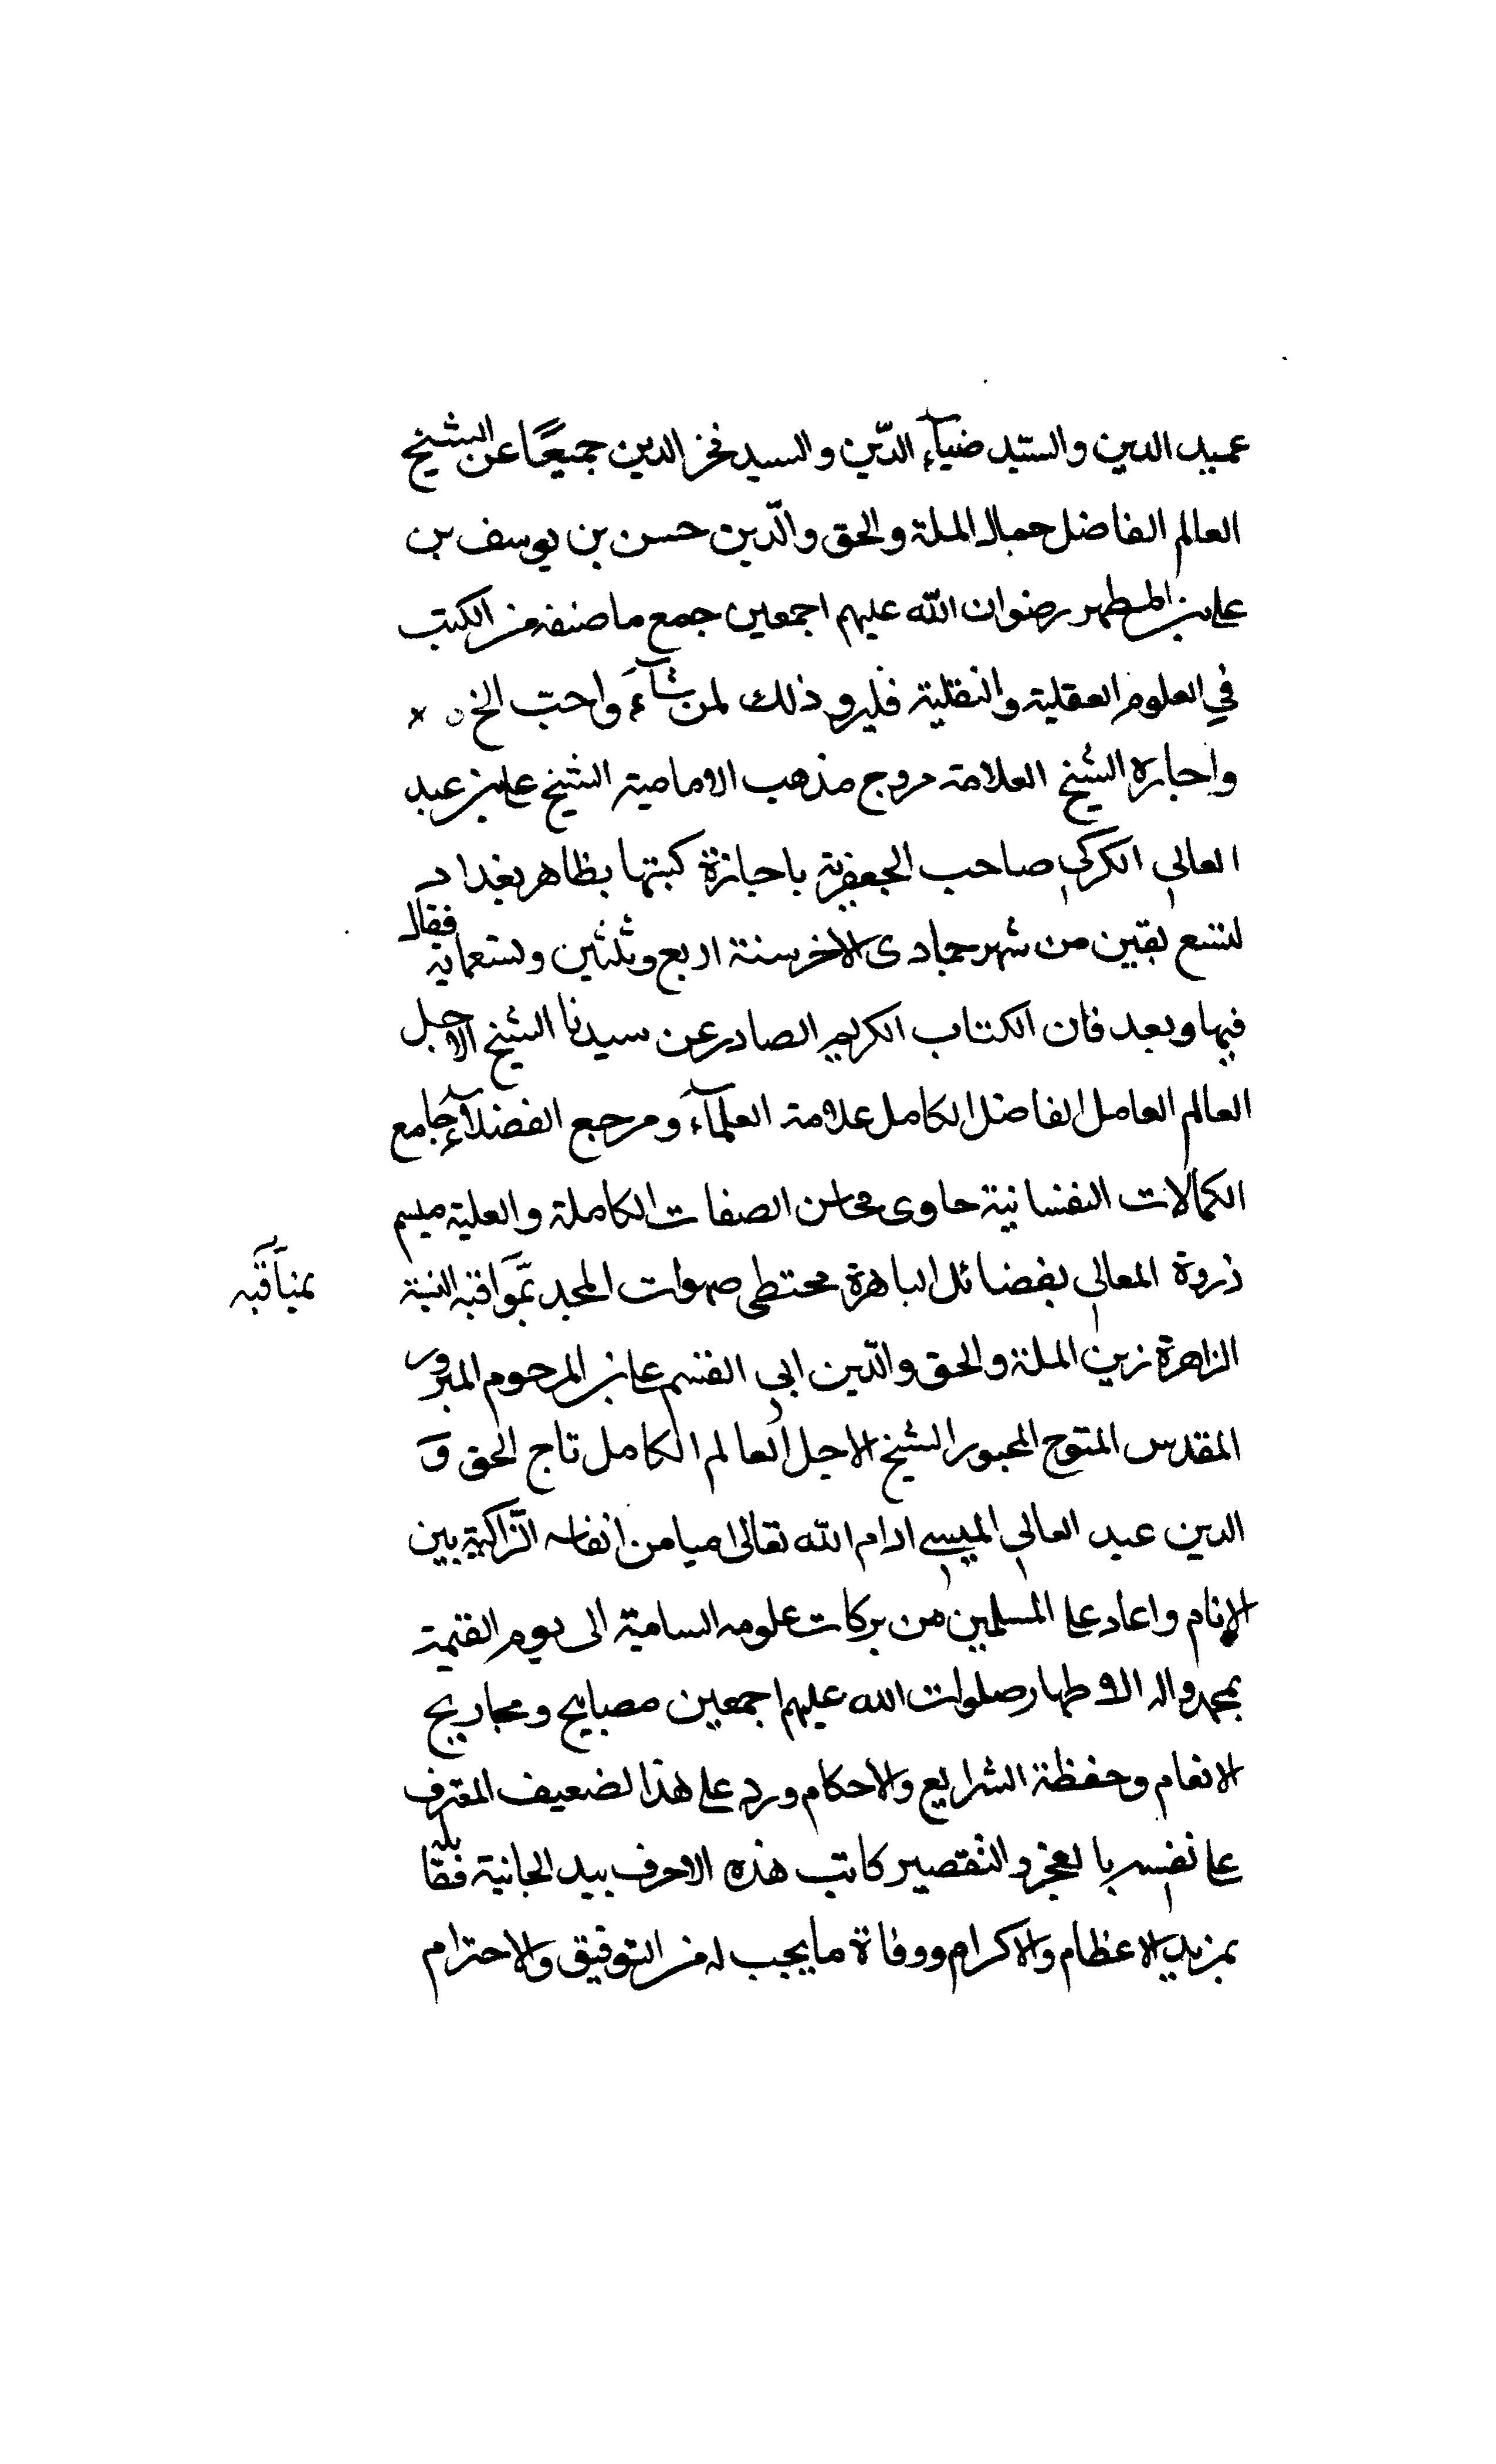 عميد الدين والسيد ضيآء الدّين والسيد فخر الدين جميعًا عن الشيخ
العالم الفاضل جمال الملة والحق والدّين حسن بن يوسف بن
على بن المطهر رضوان الله عليهم اجمعين جمع ما صنفه من الكتب
في العلوم العقلية والنقلية فليرو ذلك لمن شآءَ واحبّ الخ
واجازه الشيخ العلامة مروج مذهب الامامية الشيخ على بن عبد
العالى الكركى صاحب الجعفرية باجازة كتبها بظاهر بغداد
لتسع بقين من شهر جمادى الاخر سنة اربع وثلثين وتسعماية فقال
فيها وبعد فان الكتاب الكريم الصادر عن سيدنا الشيخ الاجل
العالم العامل الفاضل الكامل علامة العلمآءَ ومرجع الفضلآءِ جامع
الكمالات النفسانية حاوى محاسن الصفات الكاملة والعلية ميسم
ذروة المعالى بفضائل الباهرة محتطى صهوات المجد بمواقبه النبتة
بمناقبه
الزاهرة زين الملة والحق والدّين ابى القسم على بن المرحوم المبرور
المقدس المتوج المحبور الشيخ الاجل العالم الكامل تاج الحق و
الدين عبد العالى الميسى ادام الله تعالى ميامن انفاسه الزّاكية بين
الانام واعاد على المسلمين من بركات علومه السامية الى يوم القيمة
بمحمد واله الاطهار صلوات الله عليهم اجمعين مصابيح ومجاريح
الانعام وحفظة الشرايع والاحكام ورد على هذا لضعيف المعترف
على نفسه بالعجز والتقصير كاتب هذه الاحرف بيد الجانية فقابله
بمزيد الاعظام والاكرام ووفاة ما يجب له من التوقيق والاحترام